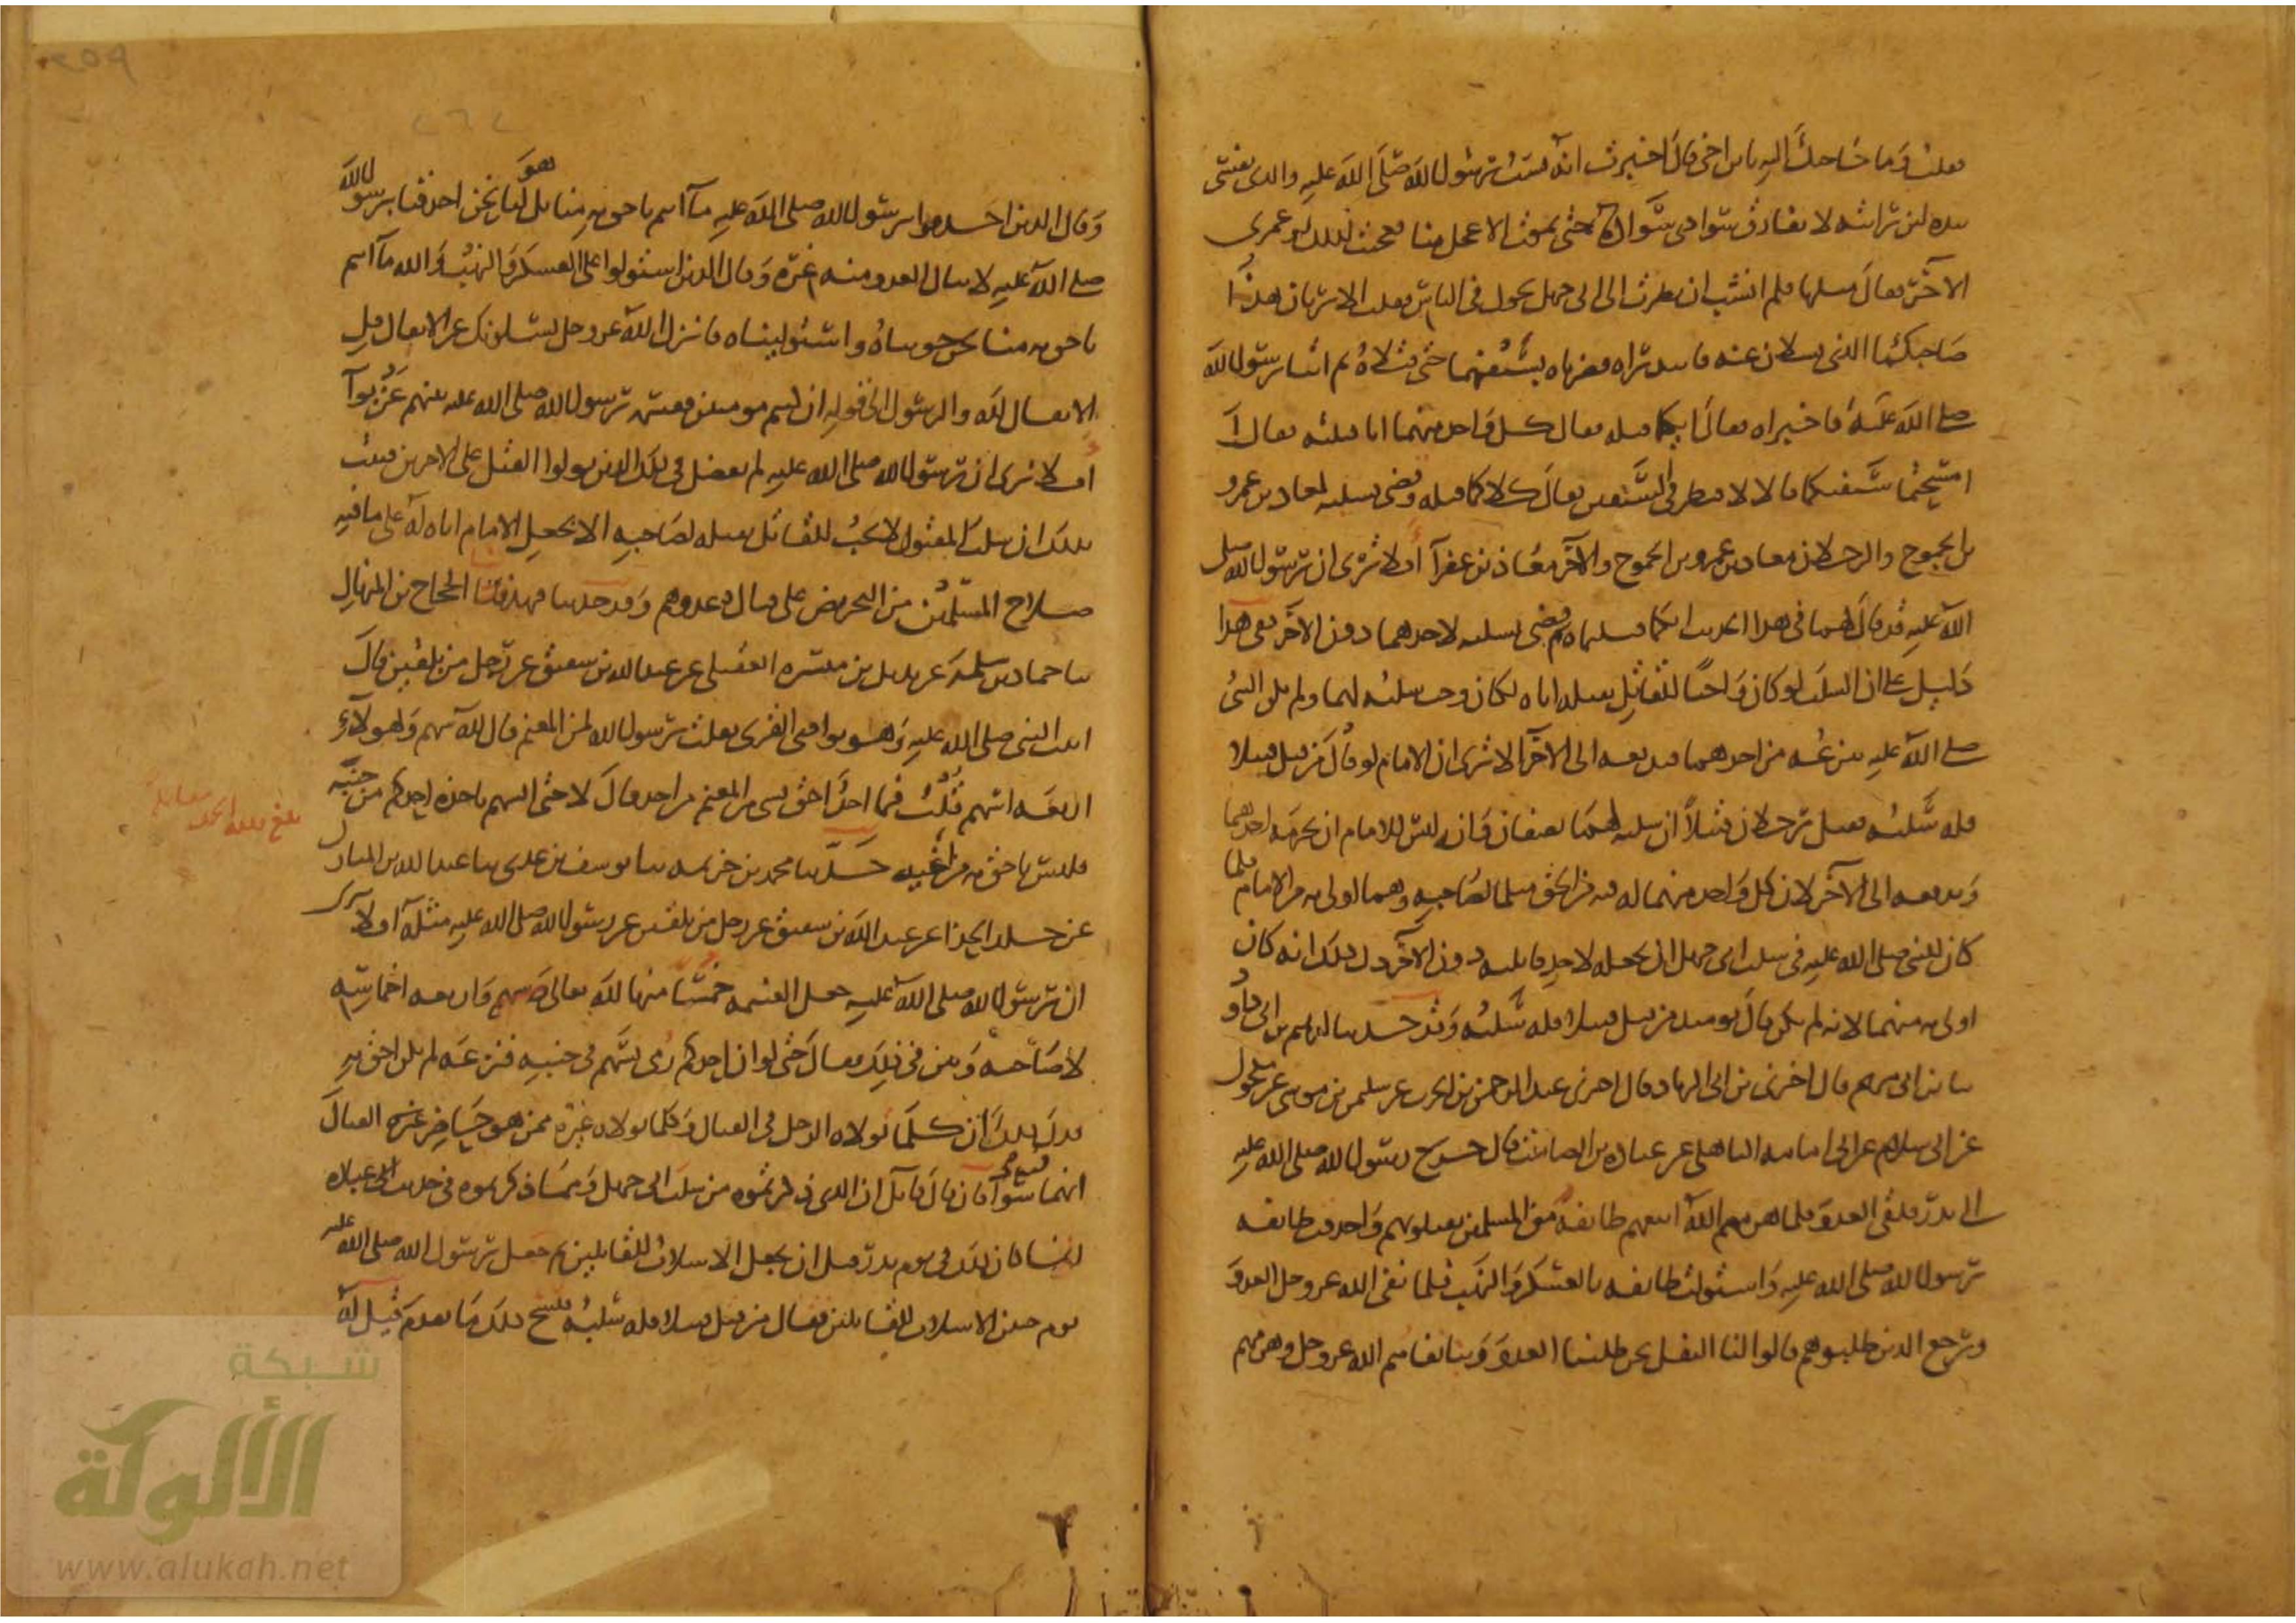 فقلت وما حاجتك إليه يا بن أخي قال أخبرت أنه يسب رسول الله صلى الله عليه والذي نفسي
بيده لئن رأيته لا يفارق سوادي سواده حتى يموت الأعجل منا فعجبت لذلك فغمزني
الآخر فقال مثلها فلم أنشب أن نظرت إلى أبي جهل يجول في الناس فقلت ألا تريان هذا
صاحبكما الذي تسألان عنه فابتدراه فضرباه بسيفيهما حتى قتلاه ثم أتيا رسول الله
صلى الله عليه فأخبراه فقال أيكما قتله فقال كل واحد منهما أنا قتلته فقال
أمسحتما سيفيكما قالا لا فنظر في السيفين فقال كلاكما قتله وقضى بسلبه لمعاذ بن عمرو
بن الجموح والرجلان معاذ بن عمرو بن الجموح والآخر معاذ بن عفرآ أفلا ترى أن رسول الله صلى
الله عليه قد قال لهما في هذا الحديث إنكما قتلتماه ثم قضى بسلبه لأحدهما دون الآخر ففي هذا
دليل على أن السلب لو كان واجبا للقاتل بقتله إياه لكان وجب سلبه لهما ولم يكن النبي
صلى الله عليه ينزعه من أحدهما فيدفعه إلى الآخر ألا ترى أن الإمام لو قال من قتل قتيلا
فله سلبه فقتل رجلان قتيلا أن سلبه لهما نصفان وأنه ليس للإمام أن يحرمه أحدهما
ويدفعه إلى الآخر لأن كل واحد منهما له فيه من الحق مثل ما لصاحبه وهما أولى به من الإمام فلما
كان للنبي صلى الله عليه في سلب أبي جهل أن يجعله لأحد قاتليه دون الآخر دل ذلك أنه كان
أولى به منهما لأنه لم يكن قال يومئذ من قتل قتيلا فله سلبه وقد حدثنا إبراهيم بن أبي داود
ثنا بن أبي مريم قال أخبرني بن أبي الزناد قال أخبرني عبد الرحمن بن الحرث عن سليمن بن موسى عن مكحول
عن أبي سلام عن أبي أمامة الباهلي عن عبادة بن الصامت قال خرج رسول الله صلى الله عليه
إلى بدر فلقي العدو فلما هزمهم الله اتبعهم طائفة من المسلمين يقتلونهم وأحدقت طائفة
برسول الله صلى الله عليه واستولت طائفة بالعسكر والنهب فلما نفى الله عز وجل العدو
ورجع الذين طلبوهم قالوا لنا النفل نحن طلبنا العدو وبنا نفاهم الله عز وجل وهزمهم
وقال الذين أحدقوا برسول الله صلى الله عليه ما أنتم بأحق به منا بل هو لنا نحن أحدقنا برسول الله
صلى الله عليه لا ينال العدو منه غرة وقال الذين استولوا على العسكر والنهب والله ما أنتم
بأحق به منا نحن حويناه واستولينا فأنزل الله عز وجل يسئلونك عن الأنفال قل
الأنفال لله والرسول إلى قوله إن كنتم مومنين فقسمه رسول الله صلى الله عليه بينهم عن بواء
أفلا ترى أن رسول الله صلى الله عليه لم يفضل في ذلك الذين تولوا القتل على الآخرين فثبت
بذلك أن سلب المقتول لا يجب للقاتل بقتله صاحبه إلا بجعل الإمام إياه له على ما فيه
صلاح المسلمين من التحريض على قتال عدوهم وقد حدثنا فهد ثنا الحجاج بن المنهال
ثنا حماد بن سلمة عن بديل بن ميسرة العقيلي عن عبد الله بن شقيق عن رجل من بلقين قال
أتيت النبي صلى الله عليه وهو بوادي القرى فقلت يرسول الله لمن المغنم قال لله سهم ولهولآء
أربعة أسهم قلت فما أحد أحق بشيء من المغنم من أحد قال لا حتى السهم يأخذه أحدكم من جنبه
فليس بأحق به من أخيه حدثنا محمد بن خزيمة ثنا يوسف بن عدي ثنا عبد الله بن المبارك
عن خلد الحذا عن عبد الله بن شقيق عن رجل من بلقين عن رسول الله صلى الله عليه مثله أفلا ترى
أن رسول الله صلى الله عليه جعل الغنيمة خمسا منها لله تعالى وأربعة أخماسه
لأصحابه وبين في ذلك فقال حتى لو أن أحدكم رمي بسهم في جنبه فنزعه لم يكن أحق به
فدل ذلك أن كلما تولاه الرجل في القتال وكلما تولاه غيره ممن هو حاضر غيره القتال
أنهما فيه سواء فإن قال قائل إن الذي ذكرتموه من سلب أبي جهل وما ذكرتموه في حديث عبادة
إنما كان ذلك في يوم بدر قبل أن يجعل الأسلاب للقاتلين ثم جعل رسول الله صلى الله عليه
يوم حنين الأسلاب للقاتلين فقال من قتل قتيلا فله سلبه فنسخ ذلك ما تقدم قيل له
شبكة
الألوكة
www.alukah.net